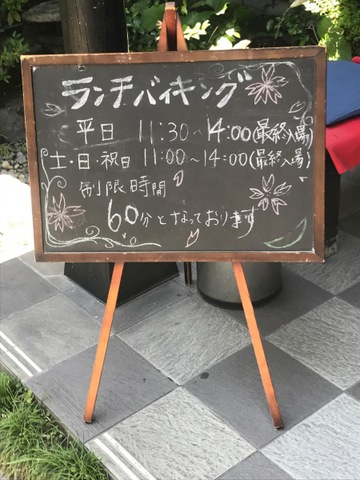 ランチバイキング
平日 11:30~14:00(最終入場)
土・日・祝日 11:00~14:00(最終入場)
制限時間
60分となっております